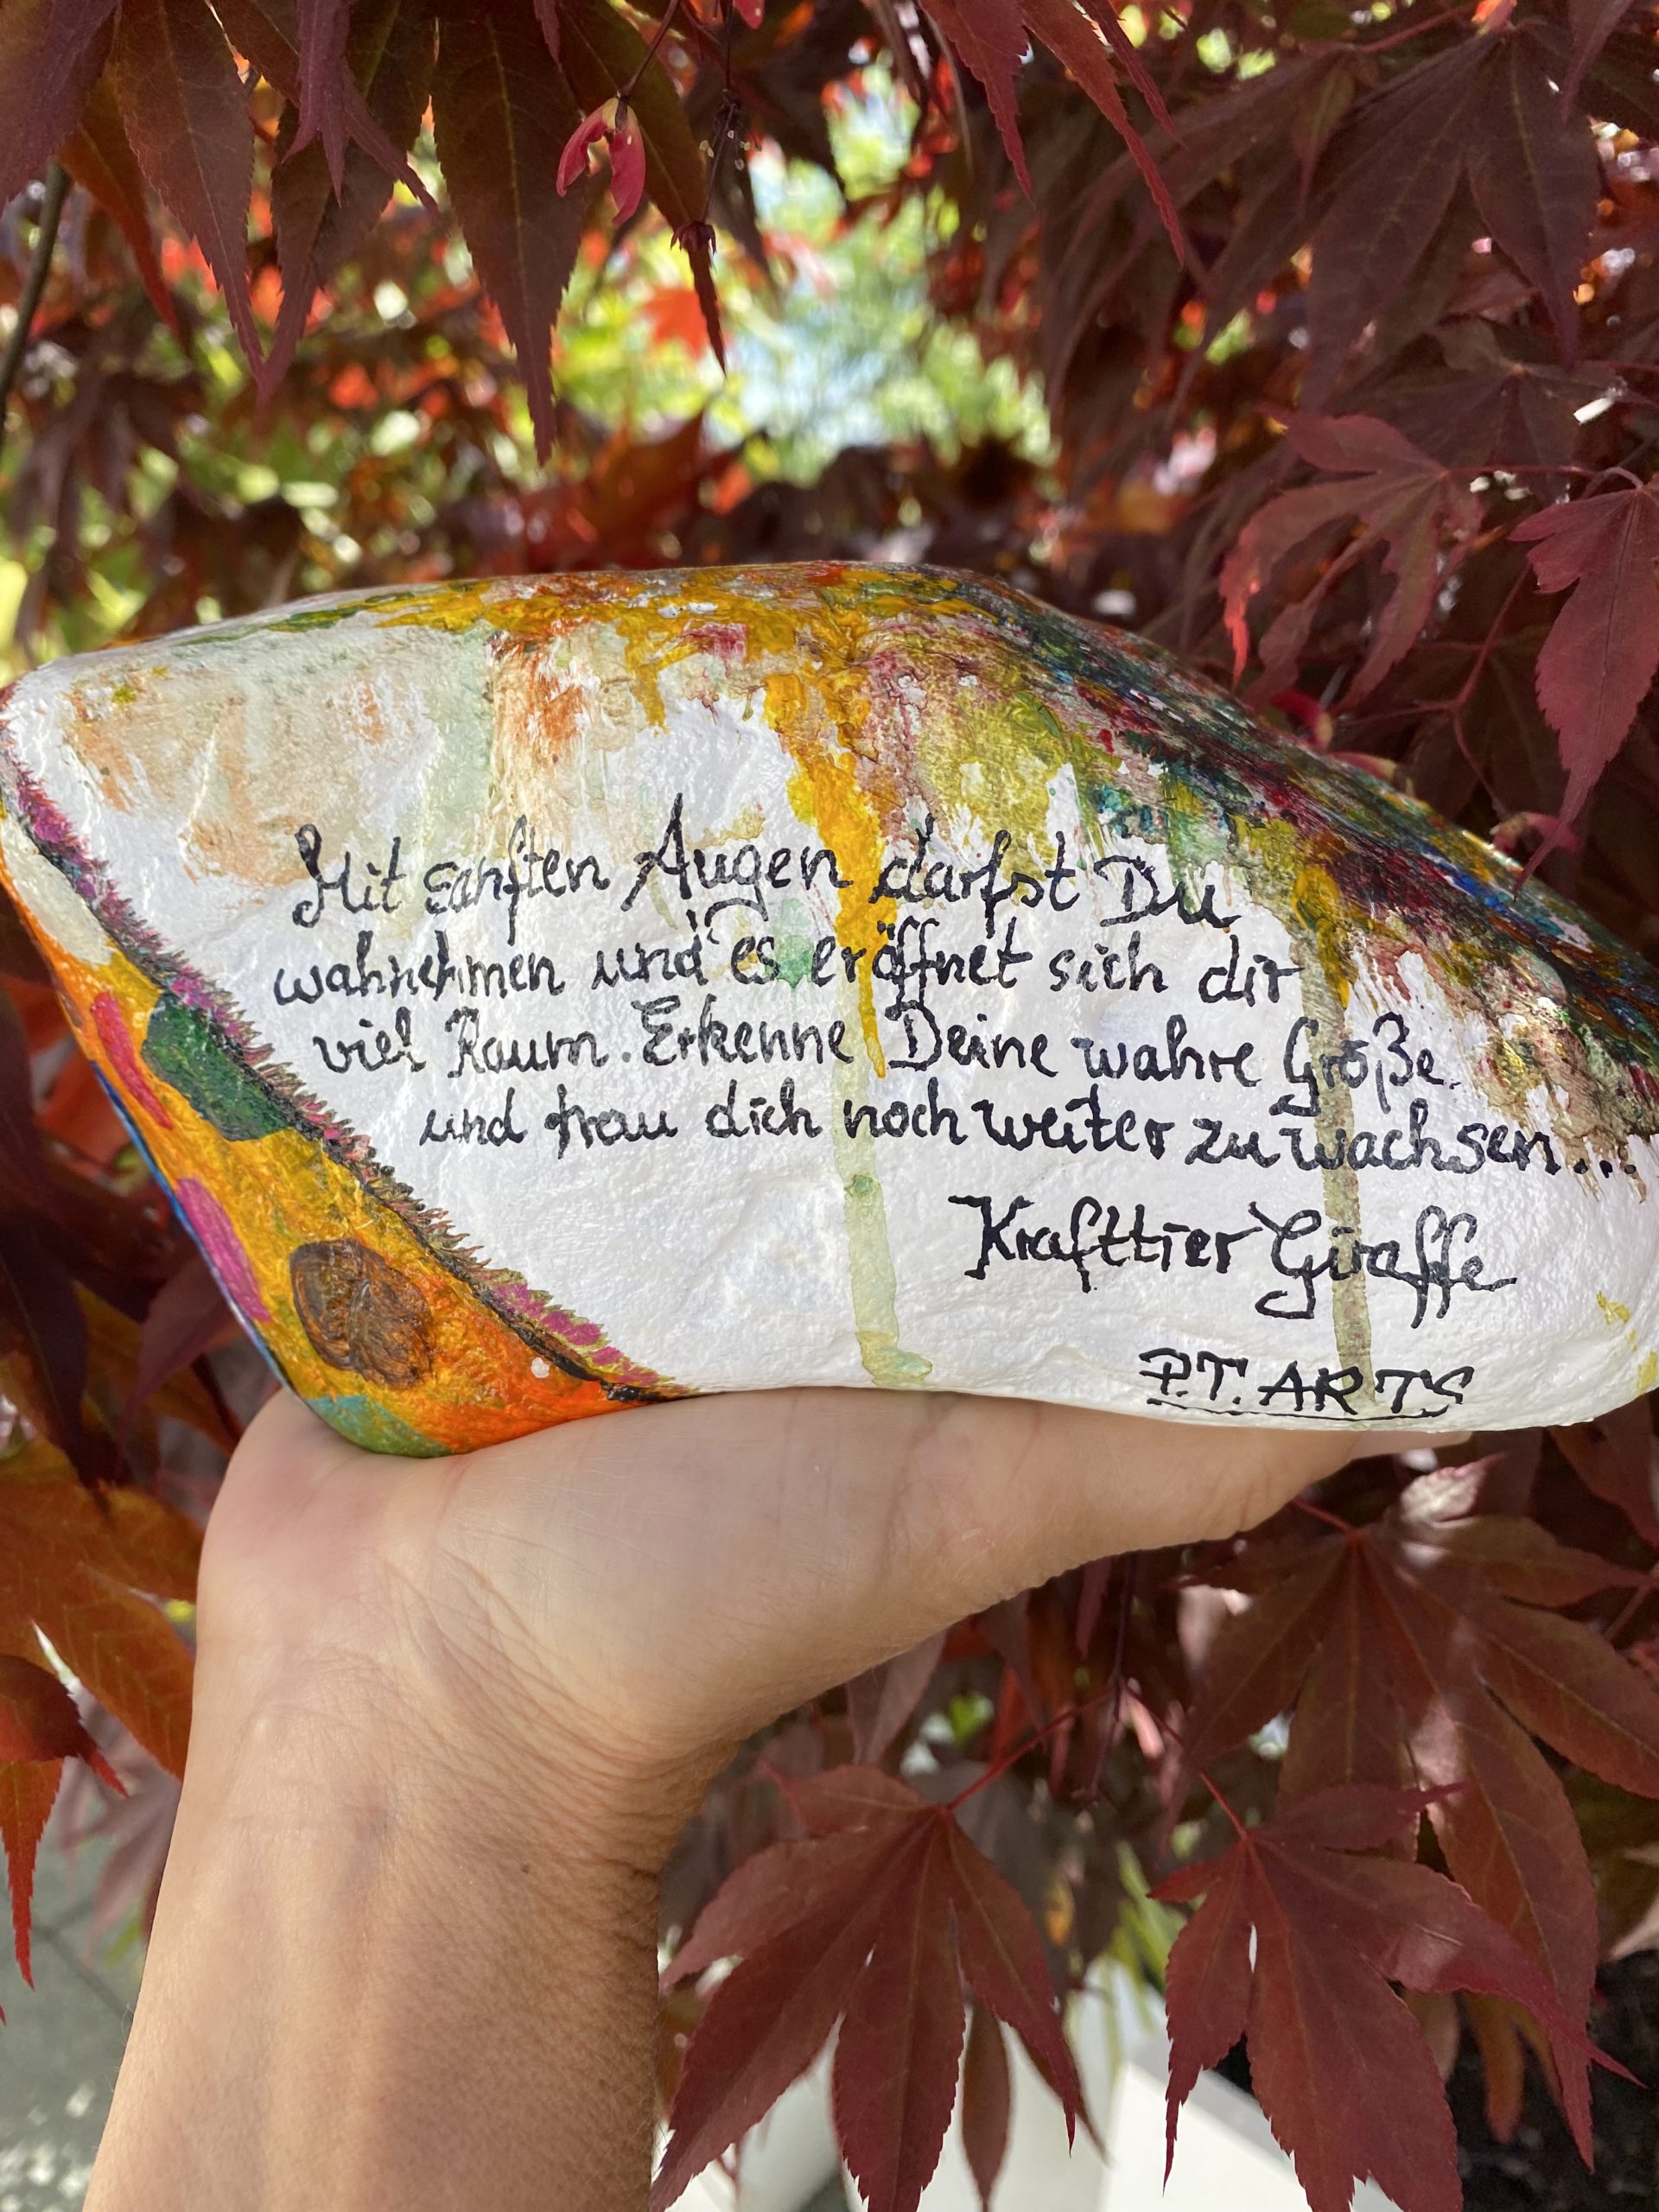 Mit sanften Augen darfst Du
wahrnehmen und es eröffnet sich dir
viel Raum. Erkenne Deine wahre Größe
und trau dich noch weiter zu wachsen...
Krafttier Giraffe
P.T. ARTS